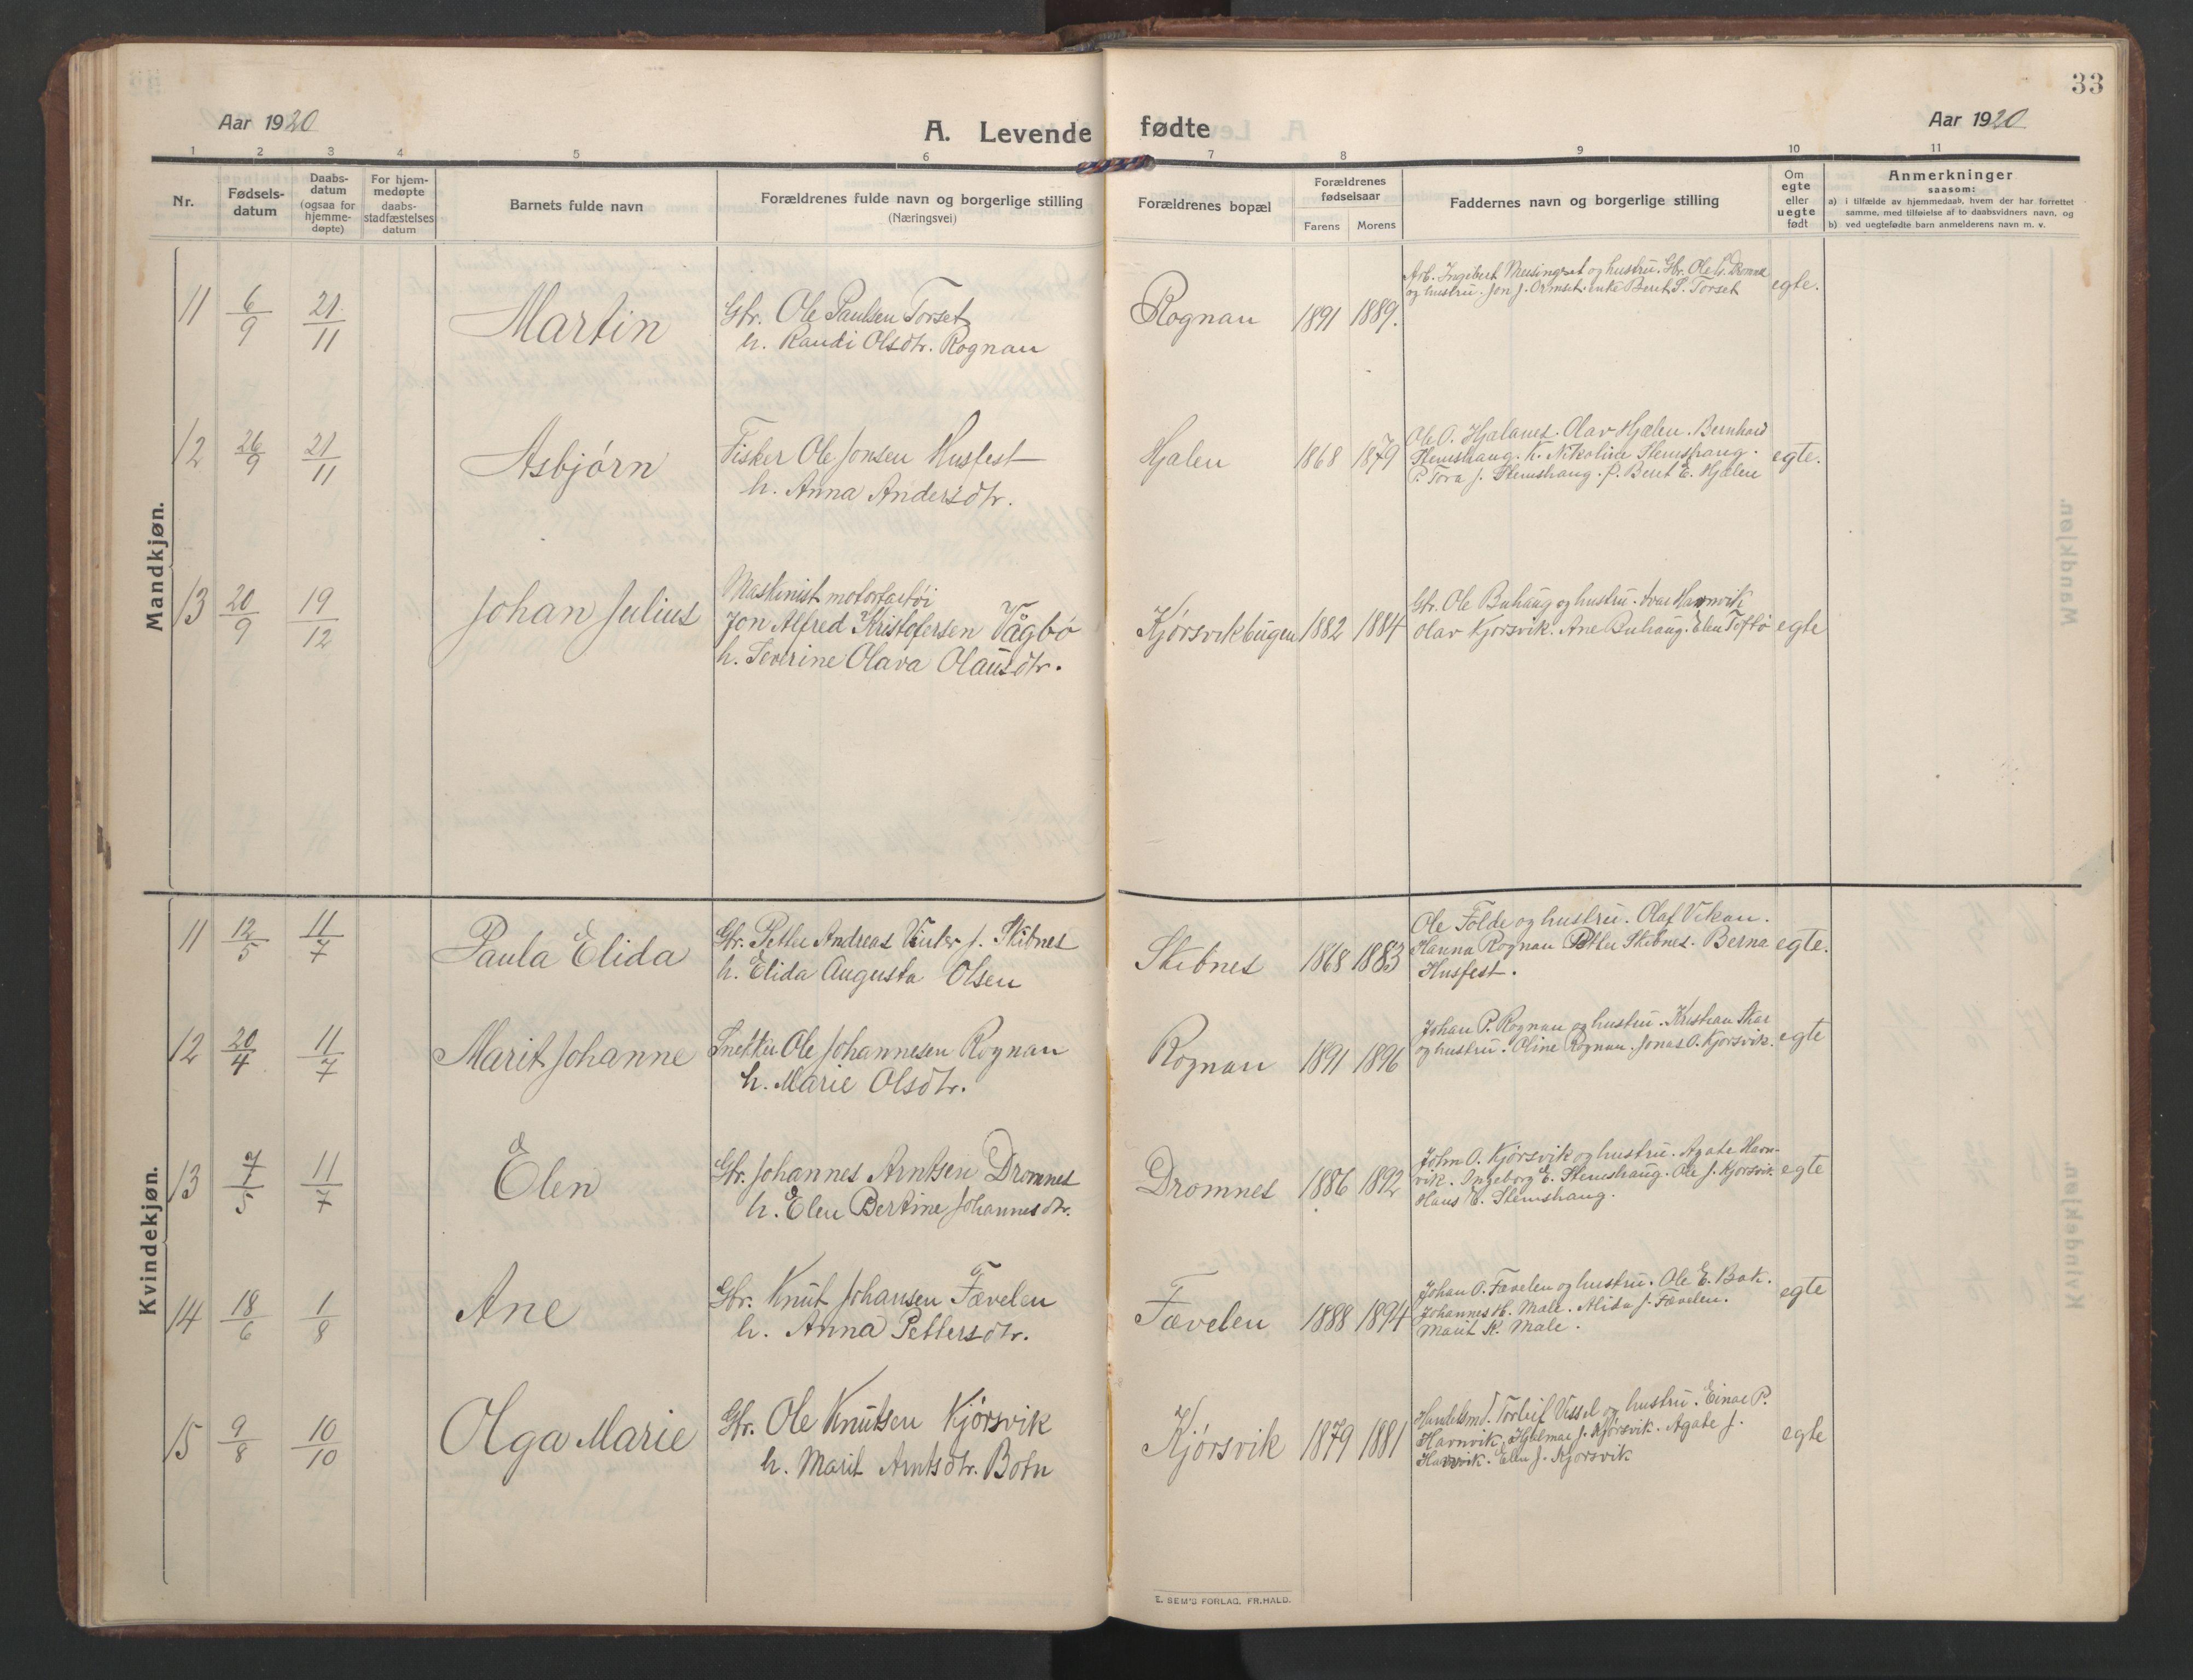 33
Aar 1920
A. Levende fødte
Aar 1920
1 2 3 4 5 6 7 8 9 10 11
Nr.
Fødsels-
datum
Daabs-
datum
(ogsaa for
hjemme-
døpte)
For hjem-
medøpte
daabs-
stadfæstelses
datum
Barnets fulde navn
Forældrenes fulde navn og borgerlige stilling
(Næringsvei)
Forældrenes bopæl
Forældrenes
fødselsaar
Farens Morens
Faddernes navn og borgerlige stilling
Om
egte
eller
uegte
født
Anmerkninger
saasom:
a) i tilfælde av hjemmedaab, hvem der har forrettet
samme, med tilføielse af to daabsvidners navn, og
b) ved uegtefødte barn anmelderens navn m. v.
Mandkjøn.
11 6/9 21/11 Martin
Gbr. Ole Paulsen Torset
h. Randi Olsdtr. Rognan
Rognan 1891 1889.
Arb. Ingebert og hustru. Gbr. Ole
og hustru. Jon J. Ormset. enke Berit S. Torset
egte.
12 26/9 21/11 Asbjørn
Fisker Ole Jonsen Husfest
h. Anna Andersdtr.
Hjalen 1868 1879
Ole O. Hjalanes. Olav Hjalen. Bernhard
Stemshaug. K. Nikoline Stemshaug.
P. Tora J. Stemshaug. P. Berit E. Hjalen
egte.
13 20/9 19/12 Johan Julius
Maskinist motorfartøi
Jon Alfred Kristofersen Vågbø
h. Severine Olava Olausdtr.
Kjørsvikbugen 1882 1884
Gbr. Ole Buhaug og hustru. Ivar Havnvik
Olav Kjørsvik. Ane Buhaug. Elen Toftø
egte
Kvindekjøn.
11 12/5 11/7 Paula Elida
Gbr. Petter Andreas Vinter J. Skibnes
h. Elida Augusta Olsen
Skibnes 1868 1883
Ole Folde og hustru. Olaf Vikan.
Hanna Rognan Petter Skibnes. Berna
Husfest.
egte.
12 20/4 11/7 Marit Johanne
Snekker Ole Johannesen Rognan
h. Marie Olsdtr.
Rognan 1891 1896
Johan P. Rognan og hustru. Kristian Skar
og hustru. Oline Rognan. Jonas O. Kjørsvik.
egte
13 7/5 11/7 Elen
Gbr. Johannes Arntsen Dromnes
h. Elen Bertine Johannesdtr.
Dromnes 1886 1892
John O. Kjørsvik og hustru. Agate Havn-
vik. Ingeborg E. Stemshaug. Ole J. Kjørsvik
Hans E. Stemshaug.
egte
14 18/6 1/8 Ane
Gbr. Knut Johansen Fævelen
h. Anna Pettersdtr.
Fævelen 1888 1894
Johan O. Fævelen og hustru. Ole E. Bak.
Johannes H. Male. Alida J. Fævelen.
Marit K. Male.
egte
15 9/8 10/10 Olga Marie
Gbr. Ole Knutsen Kjørsvik
h. Marit Arntsdtr. Botn
Kjørsvik 1879 1881
Handelsmd. Torleif Vessel og hustru. Einar P.
Havnvik, Hjalmar J. Kjørsvik. Agate J.
Havnvik. Elen J. Kjørsvik
egte
E. SEM'S FORLAG, FR.HALD.